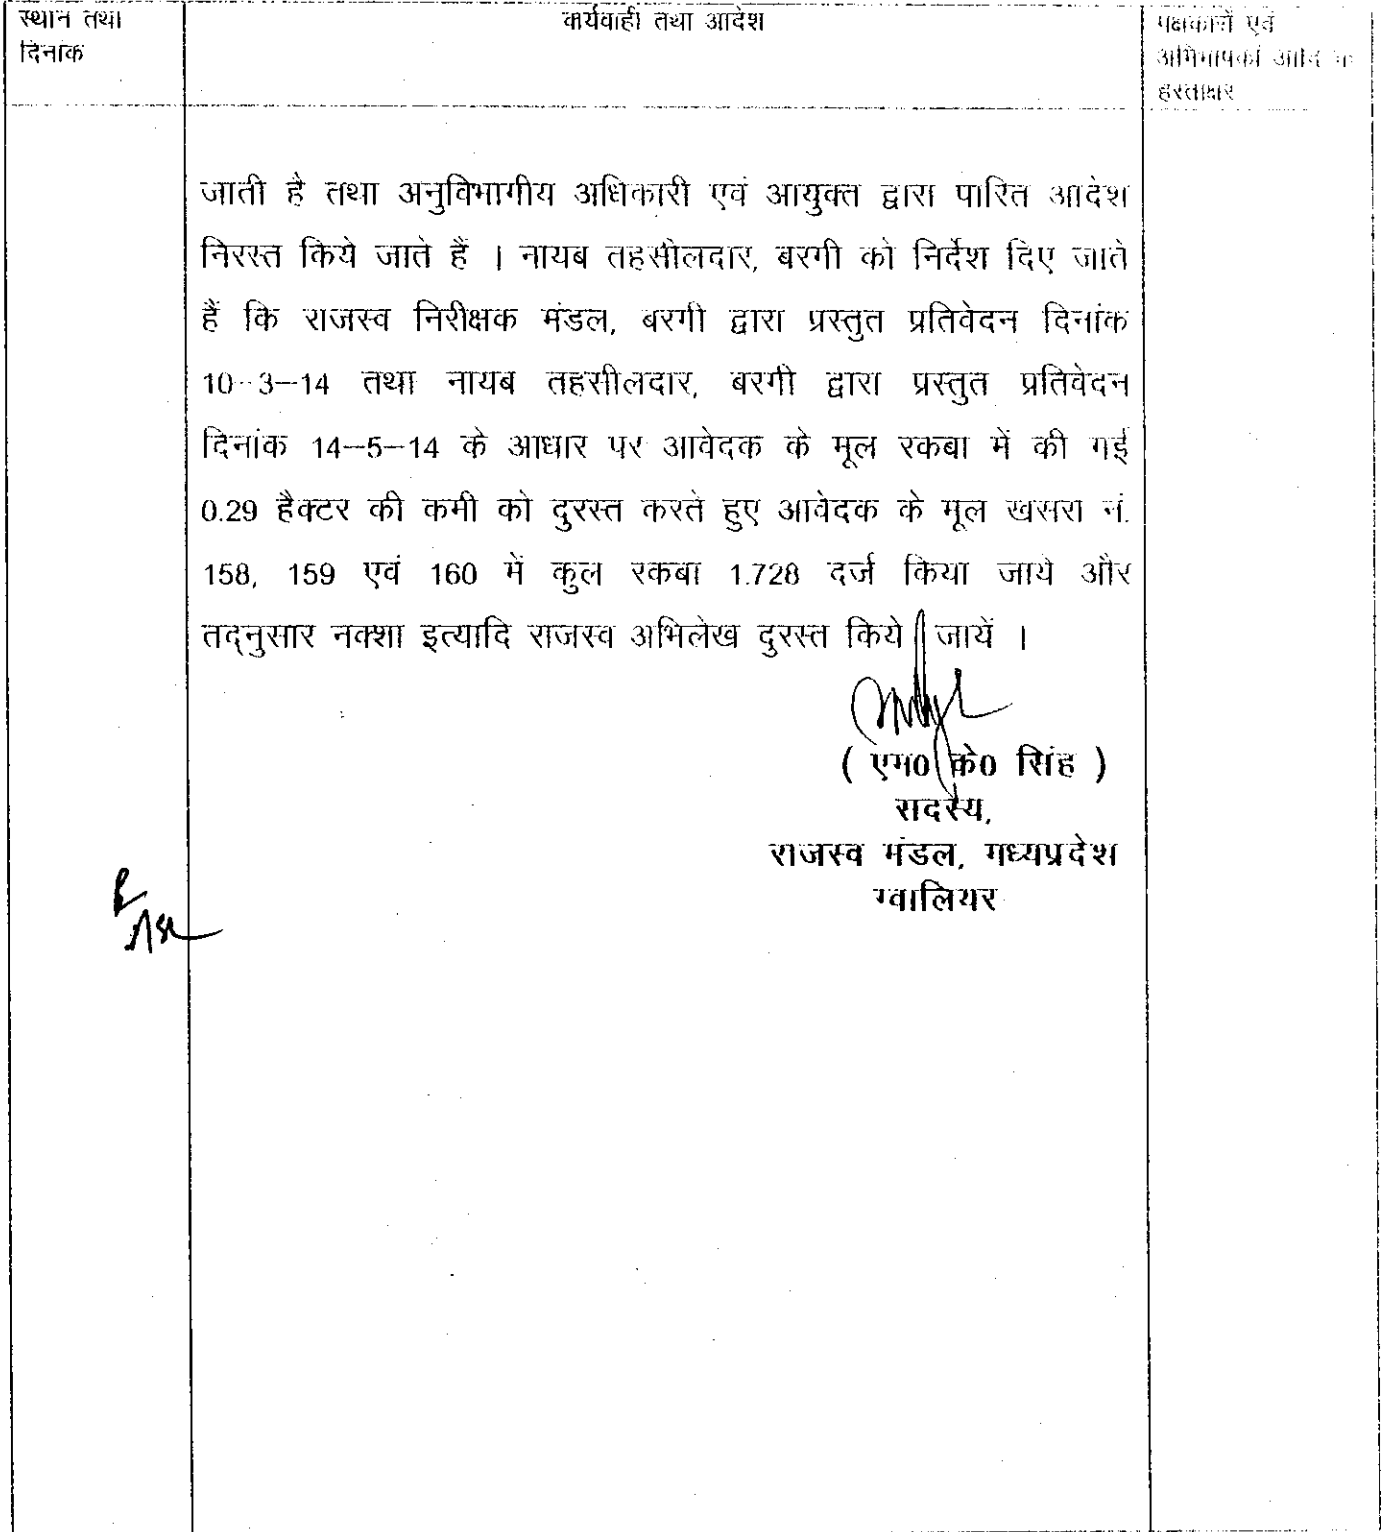 स्थान तथा
दिनांक
कार्यवाही तथा आदेश
पक्षकारों एवं
अभिभाषकों आदि के
हस्ताक्षर
जाती है तथा अनुविभागीय अधिकारी एवं आयुक्त द्वारा पारित आदेश
निरस्त किये जाते हैं । नायब तहसीलदार, बरगी को निर्देश दिए जाते
हैं कि राजस्व निरीक्षक मंडल, बरगी द्वारा प्रस्तुत प्रतिवेदन दिनांक
10-3-14 तथा नायब तहसीलदार, बरगी द्वारा प्रस्तुत प्रतिवेदन
दिनांक 14-5-14 के आधार पर आवेदक के मूल रकबा में की गई
0.29 हैक्टर की कमी को दुरस्त करते हुए आवेदक के मूल खसरा नं.
158, 159 एवं 160 में कुल रकबा 1.728 दर्ज किया जाये और
तद्नुसार नक्शा इत्यादि राजस्व अभिलेख दुरस्त किये जायें ।
( एम0 के0 सिंह )
सदस्य,
राजस्व मंडल, मध्यप्रदेश
ग्वालियर